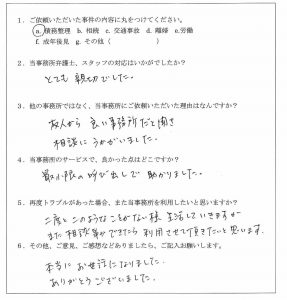 1. ご依頼いただいた事件の内容に丸をつけてください。
a. 債務整理 b. 相続 c. 交通事故 d. 離婚 e. 労働
f. 成年後見 g. その他（ ）
2. 当事務所弁護士、スタッフの対応はいかがでしたか？
とても親切でした。
3. 他の事務所ではなく、当事務所にご依頼いただいた理由はなんですか？
友人から良い事務所だと聞き
相談にうかがいました。
4. 当事務所のサービスで、良かった点はどこですか？
最小限の呼び出しで助かりました。
5. 再度トラブルがあった場合、また当事務所を利用したいと思いますか？
二度とこのようなことがない様生活していきますが
また相談等できたら利用させて頂きたいと思います。
6. その他、ご意見、ご感想などありましたら、ご記入お願いします。
本当にお世話になりました。
ありがとうございました。